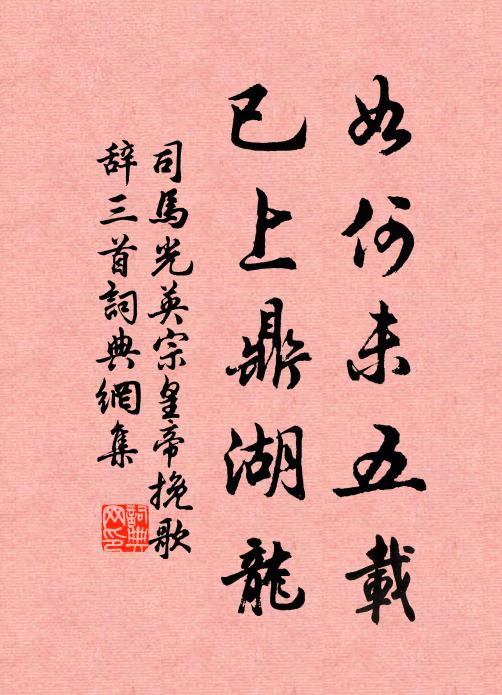 如何未五載
已上鼎湖龍
司馬光英宗皇帝挽歌
辞三首詞典網集
詞典网印